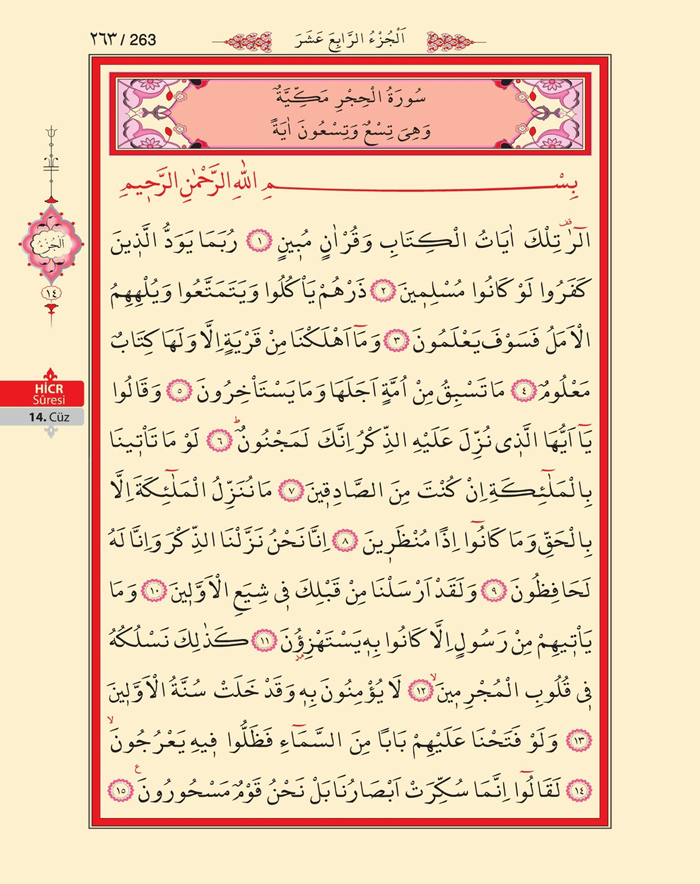 ٢٦٣ / 263
اَلْجُزْءُ الرَّابِعَ عَشَرَ
سُورَةُ الْحِجْرِ مَكِّيَّةٌ
وَهِيَ تِسْعٌ وَتِسْعُونَ اٰيَةً
بِسْمِ اللّٰهِ الرَّحْمٰنِ الرَّحٖيمِ
الٓرٰ تِلْكَ اٰيَاتُ الْكِتَابِ وَقُرْاٰنٍ مُبٖينٍ ﴿١﴾ رُبَمَا يَوَدُّ الَّذٖينَ
كَفَرُوا لَوْ كَانُوا مُسْلِمٖينَ ﴿٢﴾ ذَرْهُمْ يَاْكُلُوا وَيَتَمَتَّعُوا وَيُلْهِهِمُ
الْاَمَلُ فَسَوْفَ يَعْلَمُونَ ﴿٣﴾ وَمَٓا اَهْلَكْنَا مِنْ قَرْيَةٍ اِلَّا وَلَهَا كِتَابٌ
مَعْلُومٌ ﴿٤﴾ مَا تَسْبِقُ مِنْ اُمَّةٍ اَجَلَهَا وَمَا يَسْتَاْخِرُونَ ﴿٥﴾ وَقَالُوا
يَٓا اَيُّهَا الَّذٖي نُزِّلَ عَلَيْهِ الذِّكْرُ اِنَّكَ لَمَجْنُونٌؕ ﴿٦﴾ لَوْ مَا تَاْتٖينَا
بِالْمَلٰٓئِكَةِ اِنْ كُنْتَ مِنَ الصَّادِقٖينَ ﴿٧﴾ مَا نُنَزِّلُ الْمَلٰٓئِكَةَ اِلَّا
بِالْحَقِّ وَمَا كَانُٓوا اِذًا مُنْظَرٖينَ ﴿٨﴾ اِنَّا نَحْنُ نَزَّلْنَا الذِّكْرَ وَاِنَّا لَهُ
لَحَافِظُونَ ﴿٩﴾ وَلَقَدْ اَرْسَلْنَا مِنْ قَبْلِكَ فٖي شِيَعِ الْاَوَّلٖينَ ﴿١٠﴾ وَمَا
يَاْتٖيهِمْ مِنْ رَسُولٍ اِلَّا كَانُوا بِهٖ يَسْتَهْزِؤُ۫نَ ﴿١١﴾ كَذٰلِكَ نَسْلُكُهُ
فٖي قُلُوبِ الْمُجْرِمٖينَۙ ﴿١٢﴾ لَا يُؤْمِنُونَ بِهٖ وَقَدْ خَلَتْ سُنَّةُ الْاَوَّلٖينَ
﴿١٣﴾ وَلَوْ فَتَحْنَا عَلَيْهِمْ بَابًا مِنَ السَّمَٓاءِ فَظَلُّوا فٖيهِ يَعْرُجُونَۙ
﴿١٤﴾ لَقَالُٓوا اِنَّمَا سُكِّرَتْ اَبْصَارُنَا بَلْ نَحْنُ قَوْمٌ مَسْحُورُونَࣖ ﴿١٥﴾
اَلْجُزْءُ
١٤
HİCR
Sûresi
14. Cüz